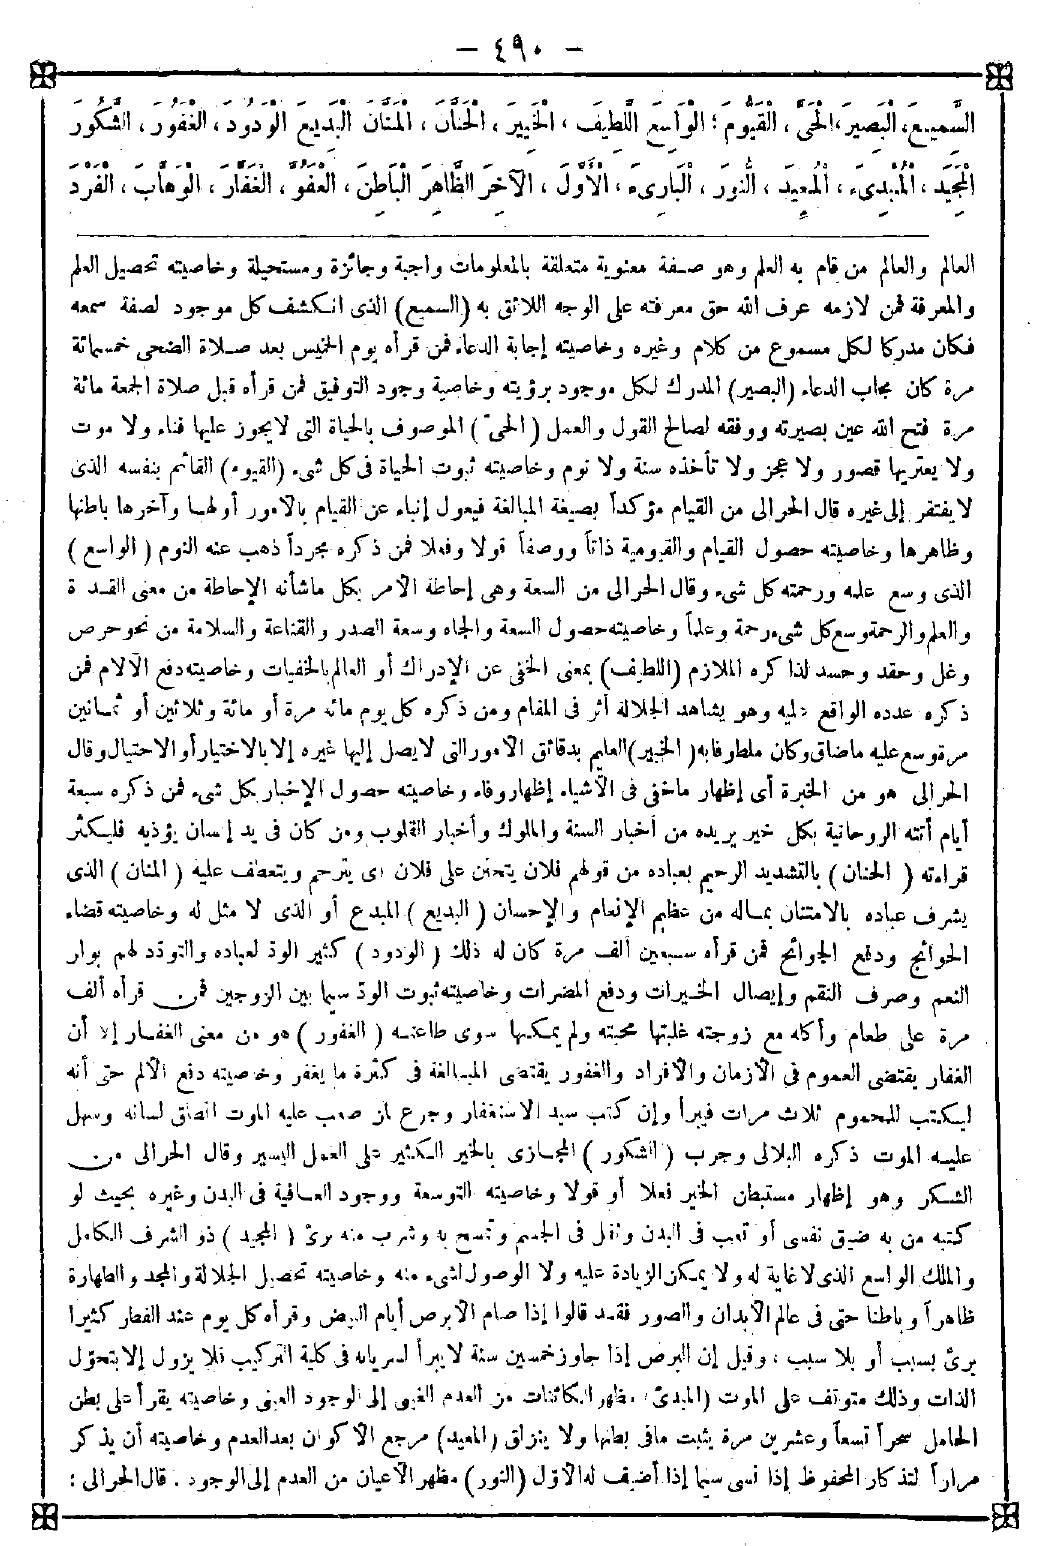 — ٤٩٠ —
السَّمِيعَ، الْبَصِيرَ، الْحَيَّ، الْقَيُّومَ ؛ الْوَاسِعَ اللَّطِيفَ ، الْخَبِيرَ ، الْحَنَّانَ ، الْمَنَّانَ الْبَدِيعَ الْوَدُودَ ، الْغَفُورَ ، الشَّكُورَ
الْمَجِيدَ ، الْمُبْدِىءَ ، الْمُعِيدَ ، النُّورَ ، الْبَارِىءَ ، الْأَوَّلَ ، الْآخِرَ الظَّاهِرَ الْبَاطِنَ ، الْعَفُوَّ ، الْغَفَّارَ ، الْوَهَّابَ ، الْفَرْدَ
العالم والعالم من قام به العلم وهو صفة معنوية متعلقة بالمعلومات واجبة وجائزة ومستحيلة وخاصيته تحصيل العلم
والمعرفة فمن لازمه عرف الله حق معرفته على الوجه اللائق به (السميع) الذى انكشف كل موجود لصفة سمعه
فكان مدركا لكل مسموع من كلام وغيره وخاصيته إجابة الدعاء فمن قرأه يوم الخميس بعد صلاة الضحى خمسمائة
مرة كان مجاب الدعاء (البصير) المدرك لكل موجود برؤيته وخاصية وجود التوفيق فمن قرأه قبل صلاة الجمعة مائة
مرة فتح الله عين بصيرته ووفقه لصالح القول والعمل (الحىّ) الموصوف بالحياة التى لايجوز عليها فناء ولا موت
ولا يعتريها قصور ولا عجز ولا تأخذه سنة ولا نوم وخاصيته ثبوت الحياة فى كل شىء (القيوم) القائم بنفسه الذى
لايفتقر إلى غيره قال الحرالى من القيام مؤكداً بصيغة المبالغة فيعول إنباء عن القيام بالأمور أولها وآخرها باطنها
وظاهرها وخاصيته حصول القيام والقيومية ذاتاً ووصفاً قولا وفعلا فمن ذكره مجرداً ذهب عنه النوم ( الواسع )
الذى وسع علمه ورحمته كل شىء وقال الحرالى من السعة وهى إحاطة الأمر بكل ماشأنه الإحاطة من معنى القدرة
والعلم والرحمة وسع كل شىء رحمة وعلماً وخاصيته حصول السعة والجاه وسعة الصدر والقناعة والسلامة من نحو حرص
وغل وحقد وحسد لذا كره الملازم (اللطيف) بمعنى الخفى عن الإدراك أو العالم بالخفيات وخاصيته دفع الآلام فمن
ذكره عدده الواقع عليه وهو يشاهد الجلالة أثر فى المقام ومن ذكره كل يوم مائه مرة أو مائة وثلاثين أو ثمانين
مرة وسع عليه ماضاق وكان ملطوفا به( الخبير)العليم بدقائق الأمور التى لايصل إليها غيره إلا بالاختيار أو الاحتيال وقال
الحرالى هو من الخبرة أى إظهار ماخفى فى الأشياء إظهار وفاء وخاصيته حصول الإخبار بكل شىء فمن ذكره سبعة
أيام أتته الروحانية بكل خير يريده من أخبار السنة والملوك وأخبار القلوب ومن كان فى يد إنسان يؤذيه فليكثر
قراءته ( الحنان ) بالتشديد الرحيم بعباده من قولهم فلان يتحنن على فلان أى يترحم ويتعطف عليه ( المنان ) الذى
يشرف عباده بالامتنان بماله من عظيم الإنعام والإحسان ( البديع ) المبدع أو الذى لا مثل له وخاصيته قضاء
الحوائج ودفع الجوائح فمن قرأه سبعين ألف مرة كان له ذلك ( الودود ) كثير الودّ لعباده والتودّد لهم بوار
النعم وصرف النقم وإيصال الخيرات ودفع المضرات وخاصيته ثبوت الودّ سيما بين الزوجين فمن قرأه ألف
مرة على طعام وأكله مع زوجته غلبتها محبته ولم يمكنها سوى طاعته ( الغفور ) هو من معنى الغفار إلا أن
الغفار يقتضى العموم فى الأزمان والأفراد والغفور يقتضى المبالغة فى كثرة ما يغفر وخاصيته دفع الألم حتى أنه
ليكتب للمحموم ثلاث مرات فيبرأ وإن كتب سيد الاستغفار وجرع لمن صعب عليه الموت انطلق لسانه وسهل
عليه الموت ذكره البلالى وجرب ( الشكور ) المجازى بالخير الكثير على العمل اليسير وقال الحرالى من
الشكر وهو إظهار مستبطن الخير فعلا أو قولا وخاصيته التوسعة ووجود العافية فى البدن وغيره بحيث لو
كتبه من به ضيق نفس أو تعب فى البدن وثقل فى الجسم وتمسح به وشرب منه برئ ( المجيد ) ذو الشرف الكامل
والملك الواسع الذى لاغاية له ولا يمكن الزيادة عليه ولا الوصول لشىء منه وخاصيته تحصيل الجلالة والمجد والطهارة
ظاهراً وباطنا حتى فى عالم الأبدان والصور فقد قالوا إذا صام الأبرص أيام البيض وقرأه كل يوم عند الفطر كثيرا
برئ بسبب أو بلا سبب ، وقيل إن البرص إذا جاوز خمسين سنة لايبرأ لسريانه فى كلية التركيب فلا يزول إلا بتحوّل
الذات وذلك متوقف على الموت (المبدئ) مظهر الكائنات من العدم الغيبى إلى الوجود العينى وخاصيته يقرأ على بطن
الحامل سحراً تسعاً وعشرين مرة يثبت مافى بطنها ولا ينزلق (المعيد) مرجع الأكوان بعد العدم وخاصيته أن يذكر
مراراً لتذكار المحفوظ إذا نسى سيما إذا أضيف له الأوّل (النور) مظهر الأعيان من العدم إلى الوجود . قال الحرالى :